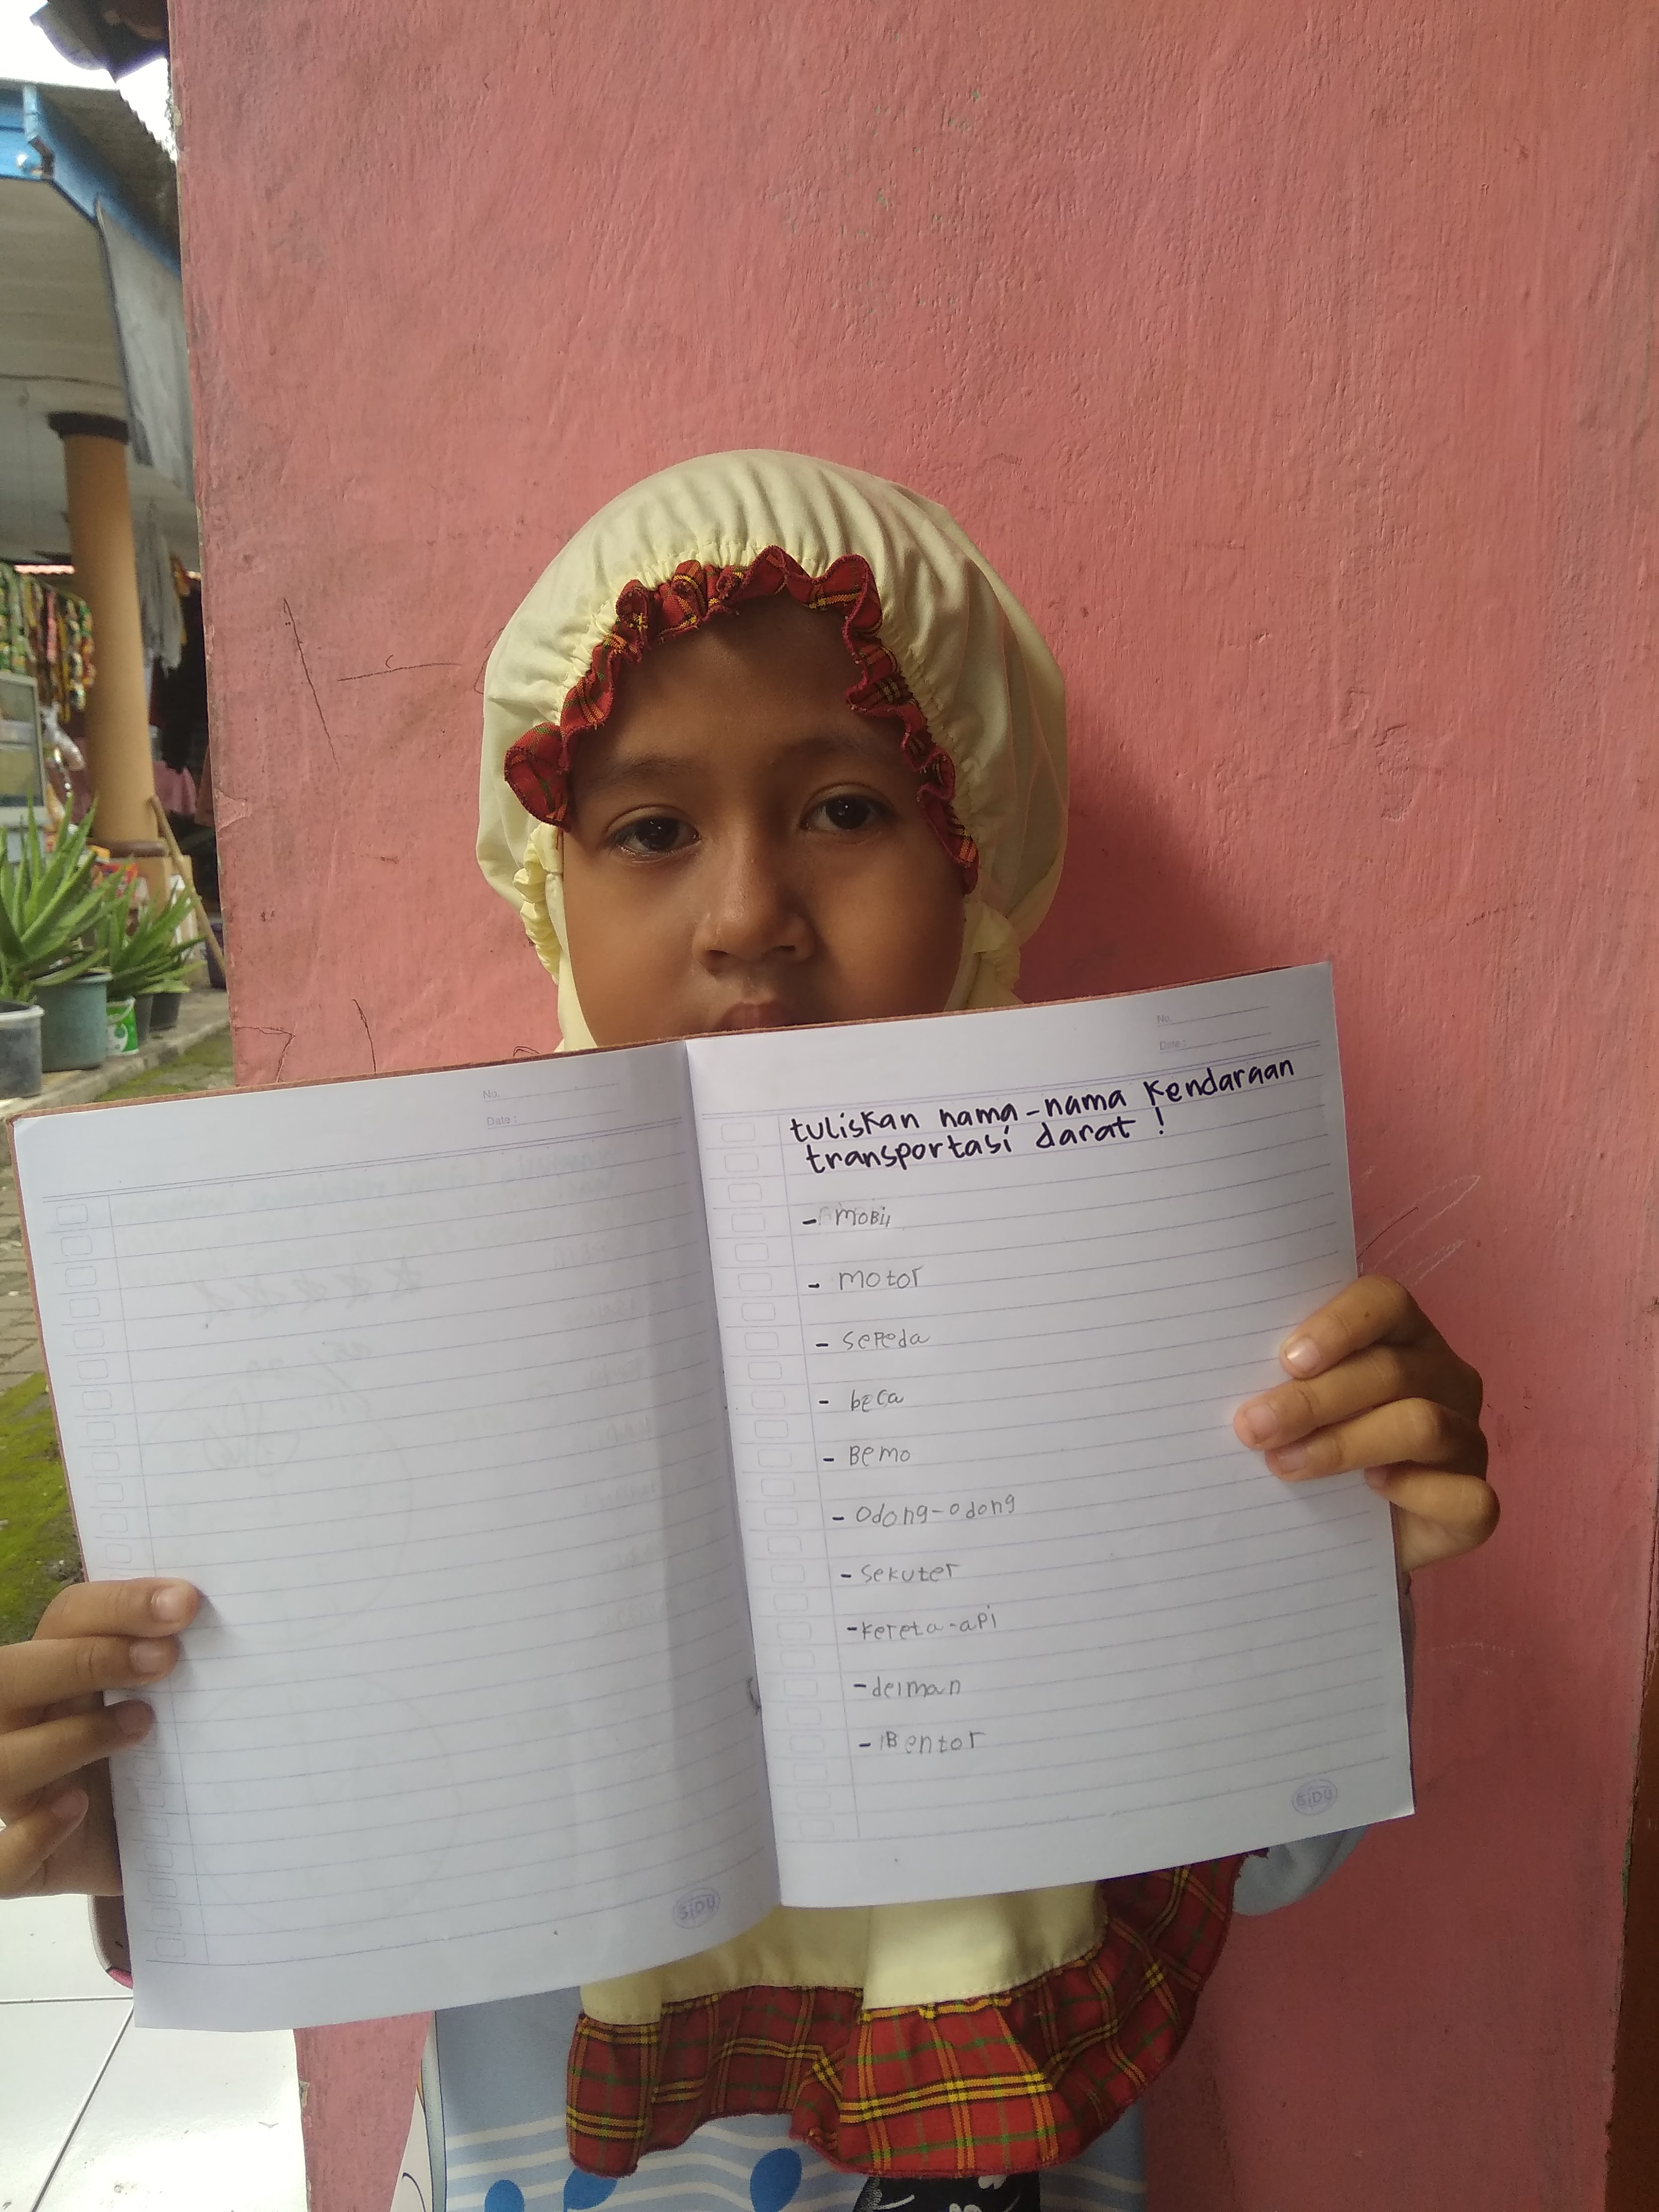 No.
Date :
No.
Date :
tuliskan nama-nama kendaraan
transportasi darat !
- mobil
- motor
- sepeda
- beca
- Bemo
- odong-odong
- sekuter
- kereta-api
- delman
- Bentor
SIDU
SIDU